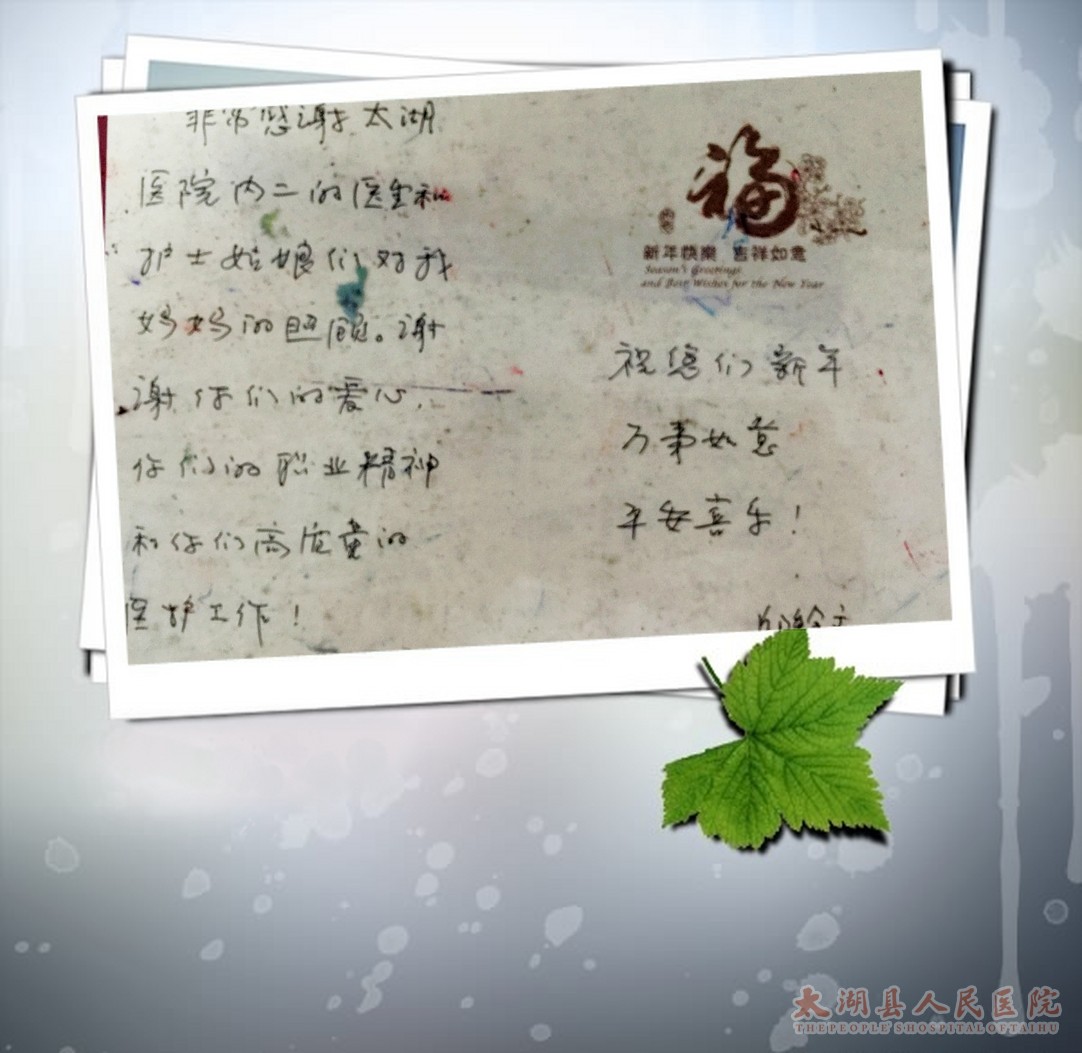 非常感谢太湖
医院内二的医生和
护士姑娘们对我
妈妈的照顾。谢
谢你们的爱心，
你们的职业精神
和你们高质量的
医护工作！
福
新年快樂 吉祥如意
Season's Greetings
and Best Wishes for the New Year
祝您们新年
万事如意
平安喜乐！
太湖县人民医院
THE PEOPLE'S HOSPITAL OF TAIHU